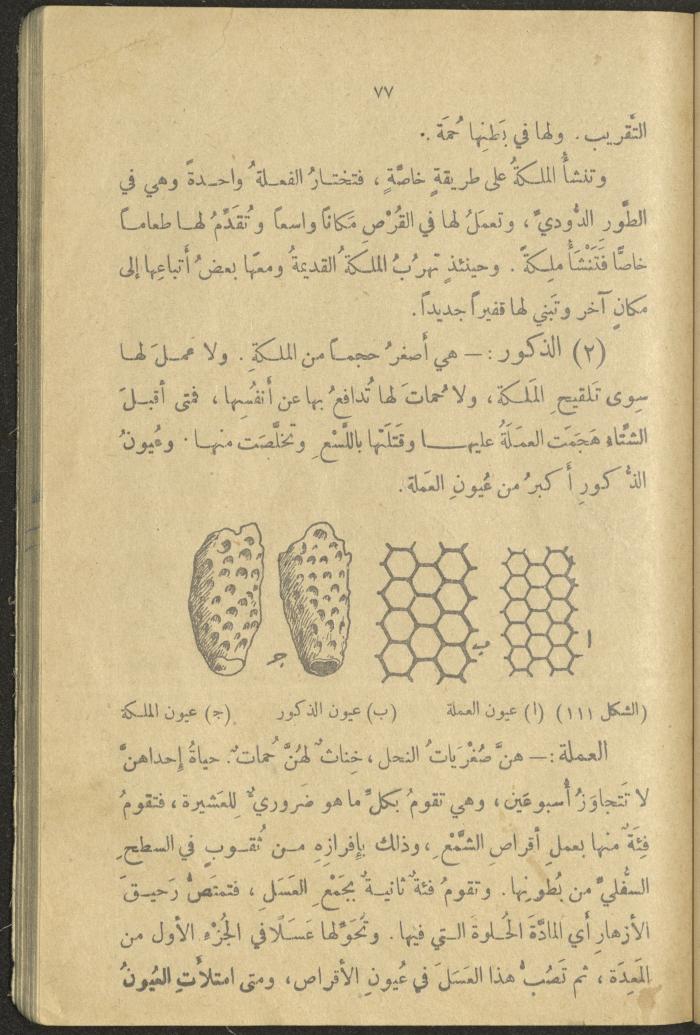 ٧٧
التَّقريب. ولها في بَطنِها حُمَة.
وتنشأُ الملكةُ على طريقةٍ خاصَّةٍ، فتختارُ الفعلةُ واحدةً وهي في
الطَّور الدُّوديِّ، وتعمَلُ لها في القُرْص مَكاناً واسعاً وتُقَدِّمُ لها طعاماً
خاصًّا فَتَنْشَأُ ملِكةً. وحينئذٍ تهرُبُ الملَكةُ القديمةُ ومعَها بعضُ أَتباعِها إلى
مكانٍ آخر وتَبني لها قفيراً جديداً.
(٢) الذكور: — هي أَصغرُ حجماً من الملكةِ. ولا عملَ لها
سِوى تَلقيحِ المَلَكة، ولا حُماتَ لها تُدافعُ بها عن أَنفُسِها، فمتى أقبلَ
الشتَّاء هَجَمَت العمَلَةُ عليها وقتَلَتْها باللَّسْعِ وتخلَّصَت منها. وعُيونُ
الذُّكورِ أَكبرُ من عُيونِ العَملة.
ا
ب
ج
(الشكل ١١١) (ا) عيون العملة (ب) عيون الذكور (ج) عيون الملكة
العملة: — هنَّ صُغْرَياتُ النحل، خِناثٌ لهُنَّ حُماتٌ. حياةُ إحداهنَّ
لا تَتجاوَزُ أُسبوعَين، وهي تقومُ بكلِّ ما هو ضَروريٌّ لِلعَشيرة، فتقومُ
فِئَةٌ منها بعملِ أقراصِ الشَّمْعِ، وذلك بإفرازِهِ من ثُقوبٍ في السطحِ
السُّفليِّ من بُطونِها. وتقومُ فئةٌ ثانيةٌ بجَمْعِ العَسَلِ، فتمتَصُّ رَحيقَ
الأزهارِ أَي المادَّةَ الحُلوةَ التي فيها. وتُحَوِّلها عَسَلًا في الجُزْءِ الأول من
المَعِدَة، ثم تَصُبُّ هذا العَسَلَ في عُيونِ الأقراص، ومتى امتلأَتِ العُيونُ